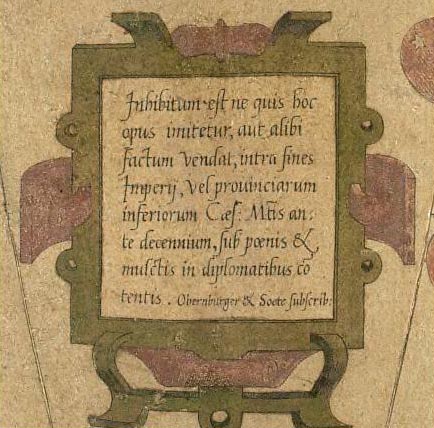 Inhibitum est ne quis hoc
opus imitetur, aut alibi
factum vendat, intra fines
Imperij, vel prouinciarum
inferiorum Cæs: Mtis an-
te decennium, sub pœnis &
mulctis in diplomatibus cō
tentis. Obernburger & Soete subscrib: